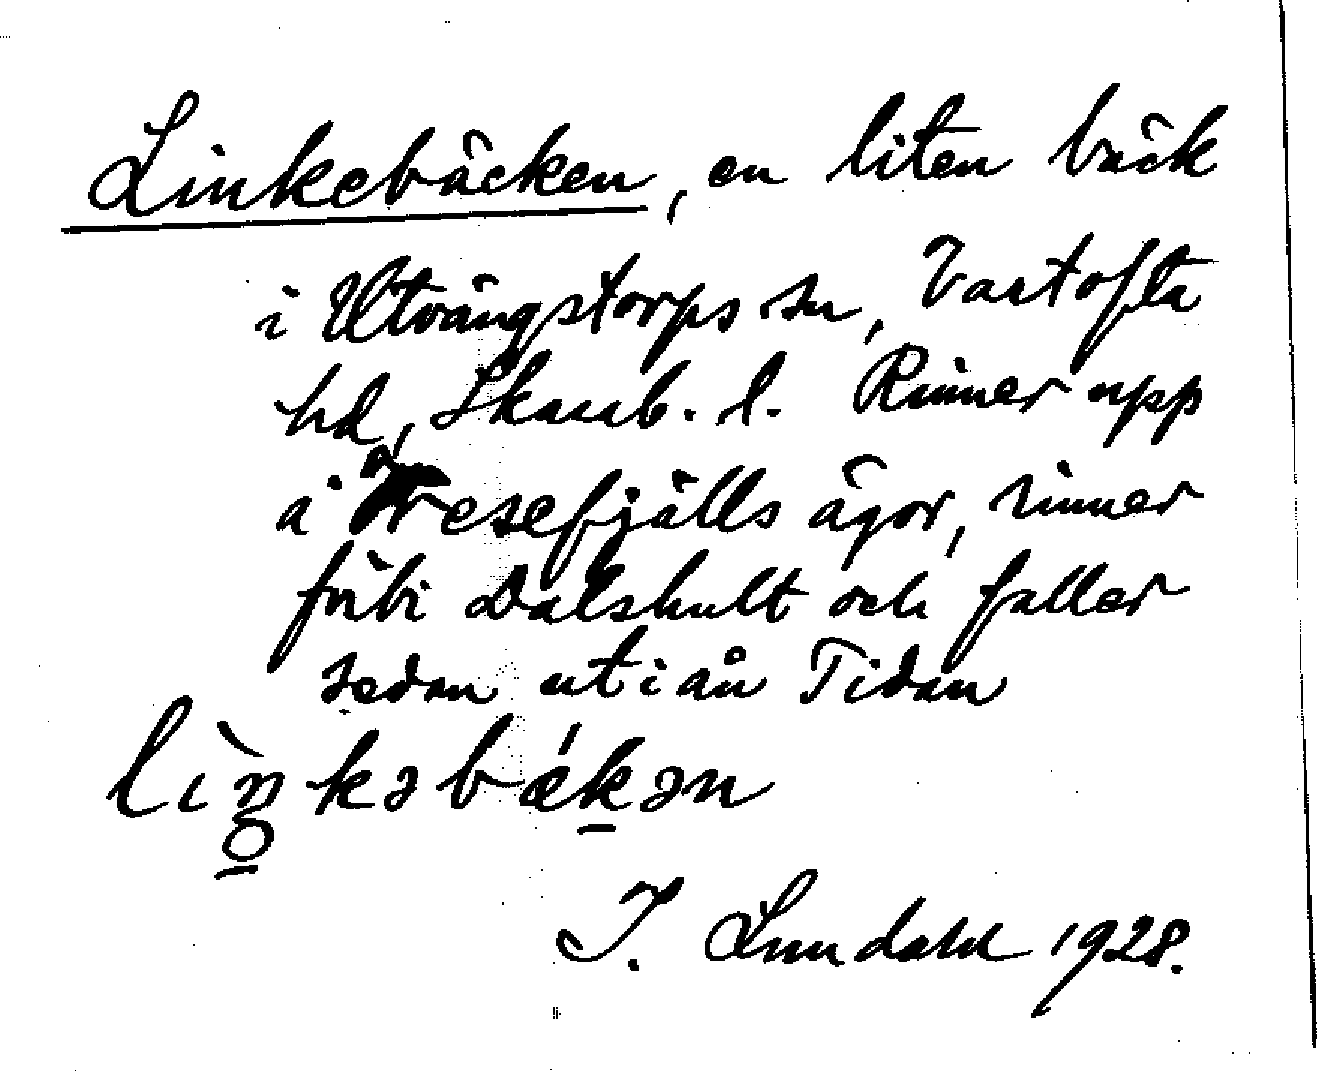 Linkebäcken, en liten bäck
i Utvängstorps sn, Vartofta
hd, Skarab. l. Rinner upp
å Vresefjälls ägor, rinner
förbi Dalshult och faller
sedan ut i ån Tidan
lìŋkəbǽkən
I. Lundahl 1928.